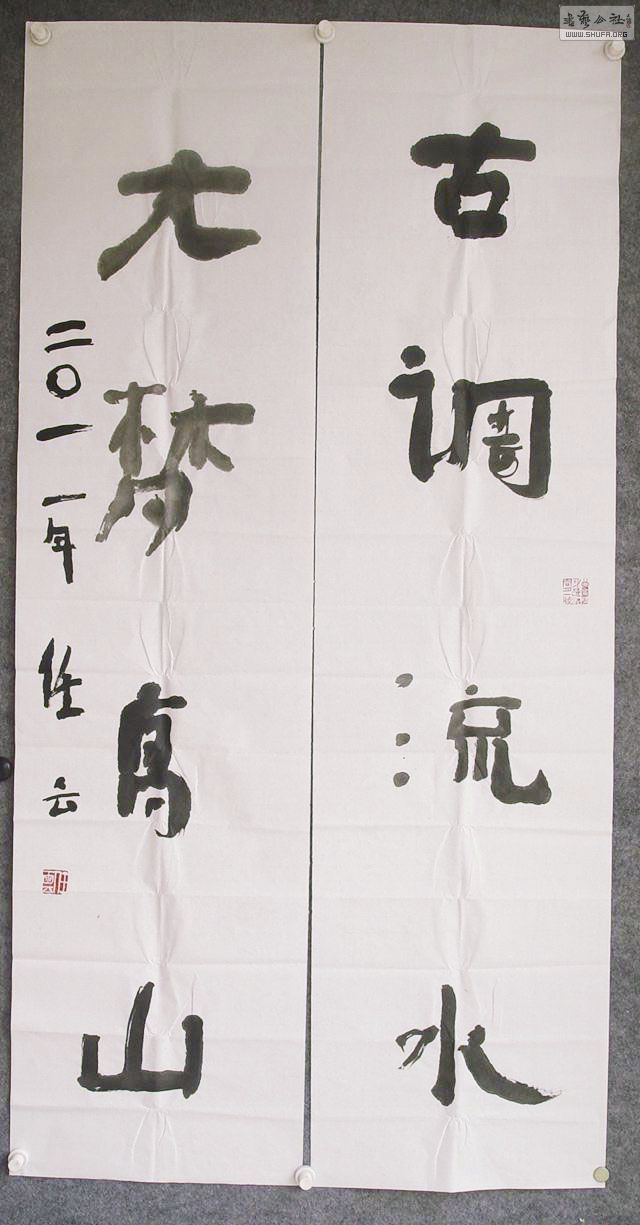 古调流水
大梦高山
二〇一一年 任云
书艺公社
WWW.SHUFA.ORG